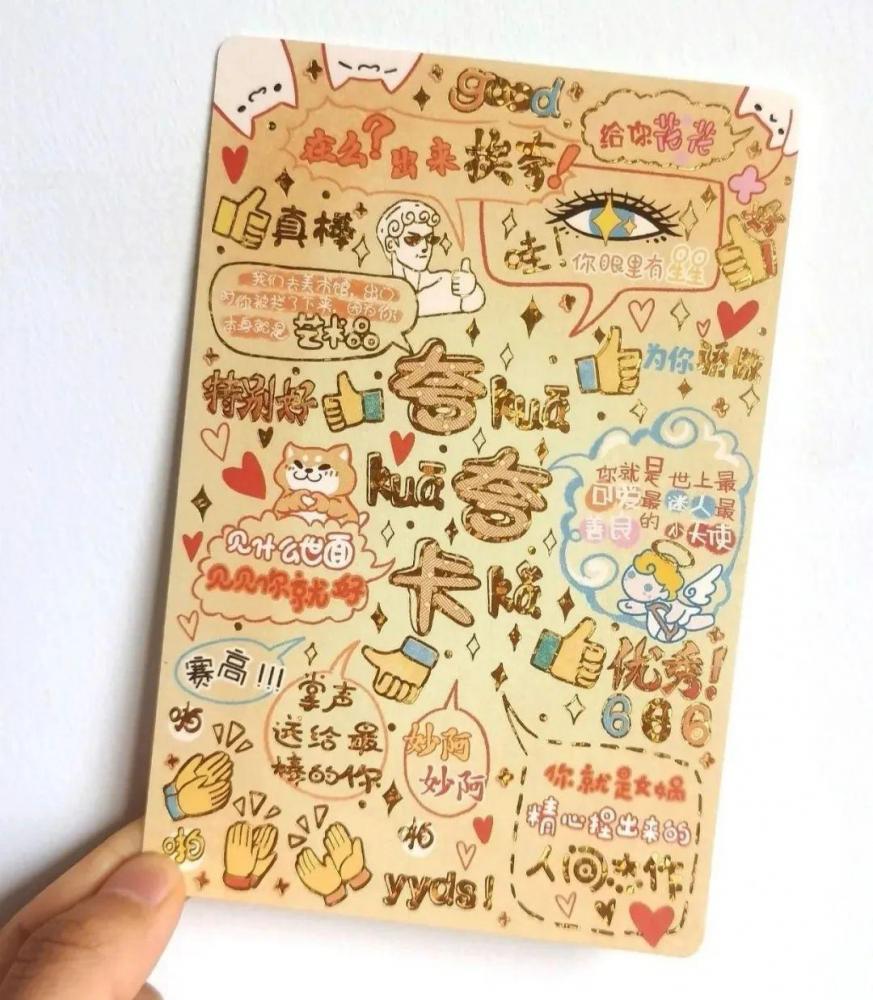 good
给你花花
在么?出来挨夸!
真棒
哇!
你眼里有星星
好
我们去美术馆,出口
时你被拦了下来,因为你
本身就是艺术品
为你骄傲
特别好
夸 kuā
kuā 夸
卡 kǎ
你就是世上最
可爱最迷人最
善良的小天使
见什么世面
见见你就好
赛高!!!
优秀!
666
掌声
送给最
棒的你
妙阿
妙阿
啪
啪
啪
yyds!
你就是女娲
精心捏出来的
人间杰作